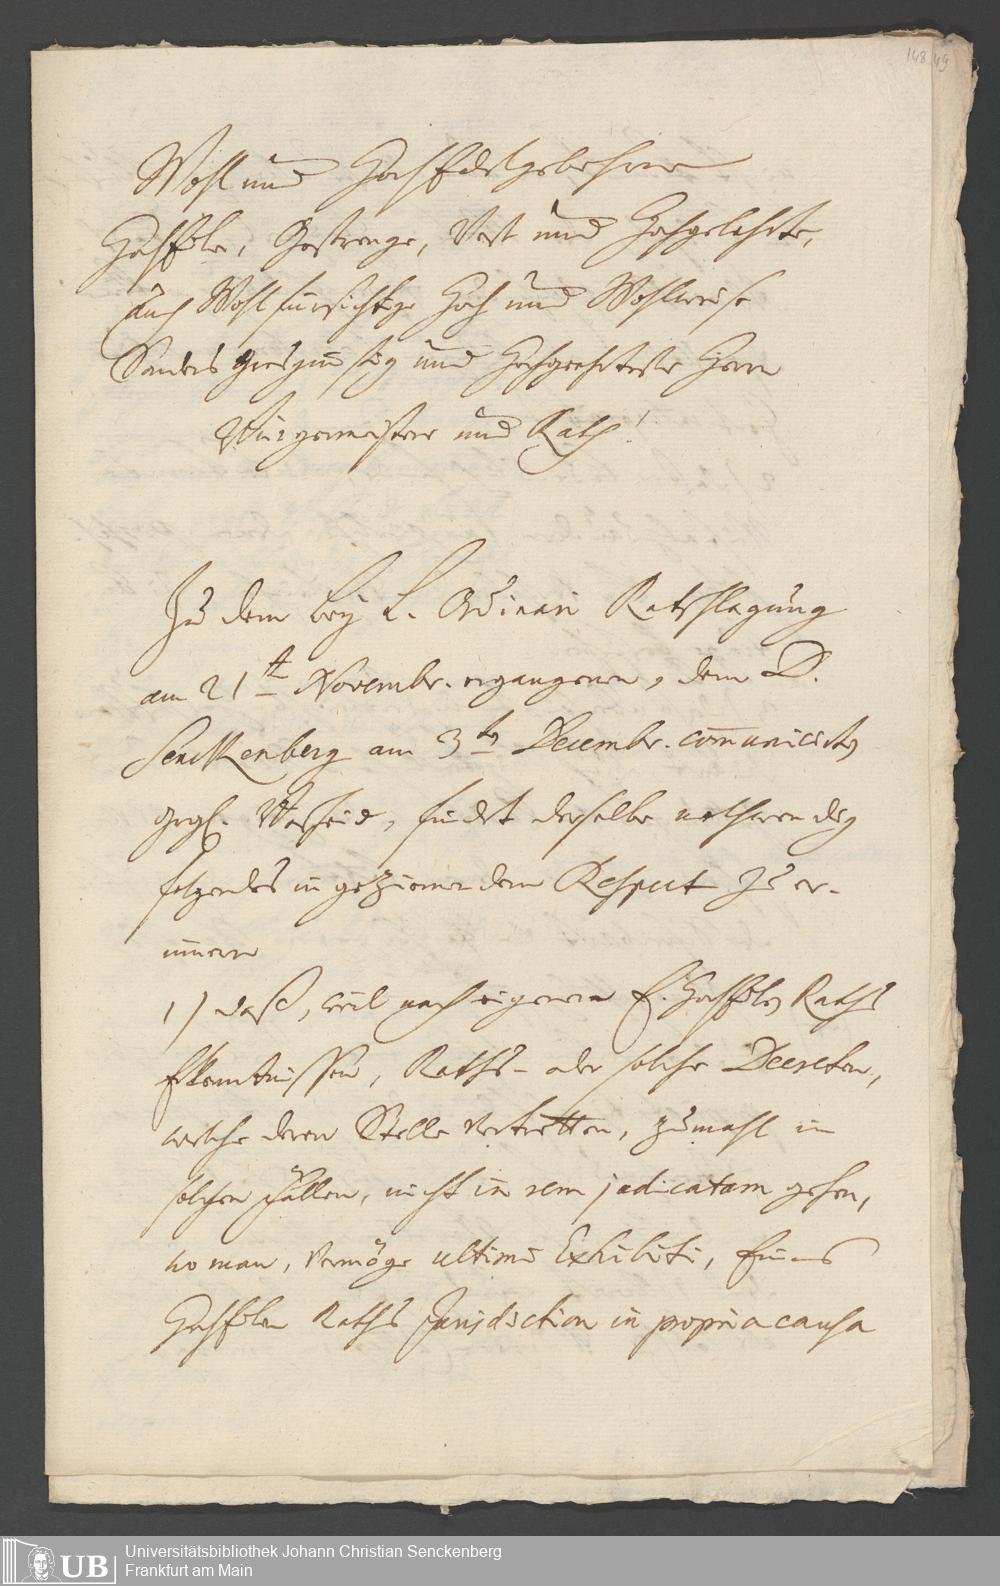 148 49
Wohl und HochEdelgebohrne
HochEdle, Gestrenge, Vest und Hochgelahrte,
auch Wohlfürsichtige Hoch und Wohlweise
Sonders Grosgünstig und Hochgeehrteste Herrn
Bürgermeistere und Rath!
Zu dem bey L. Rathschlagung
am 21t Novembr. ergangenen, dem D.
Senckenberg am 3ten Decembr. communicirten
Bescheid, findet derselbe nothwendig
folgendes in geziemendem Respect zu er-
innern
1) daß, weil nach eigenen E. HochEdlen Raths
Erkentnissen, Raths- oder solche Decreten,
welche deren Stelle vertretten, zumahl in
solchen Fällen, nicht in rem judicatam gehen,
wo man, vermöge ultimi Exhibiti, Eines
HochEdlen Raths Jurisdiction in propria causa
UB
Universitätsbibliothek Johann Christian Senckenberg
Frankfurt am Main